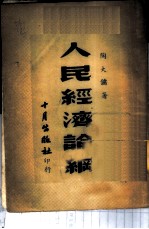 陶大鏞著
人民經濟論綱
十月出版社
印行